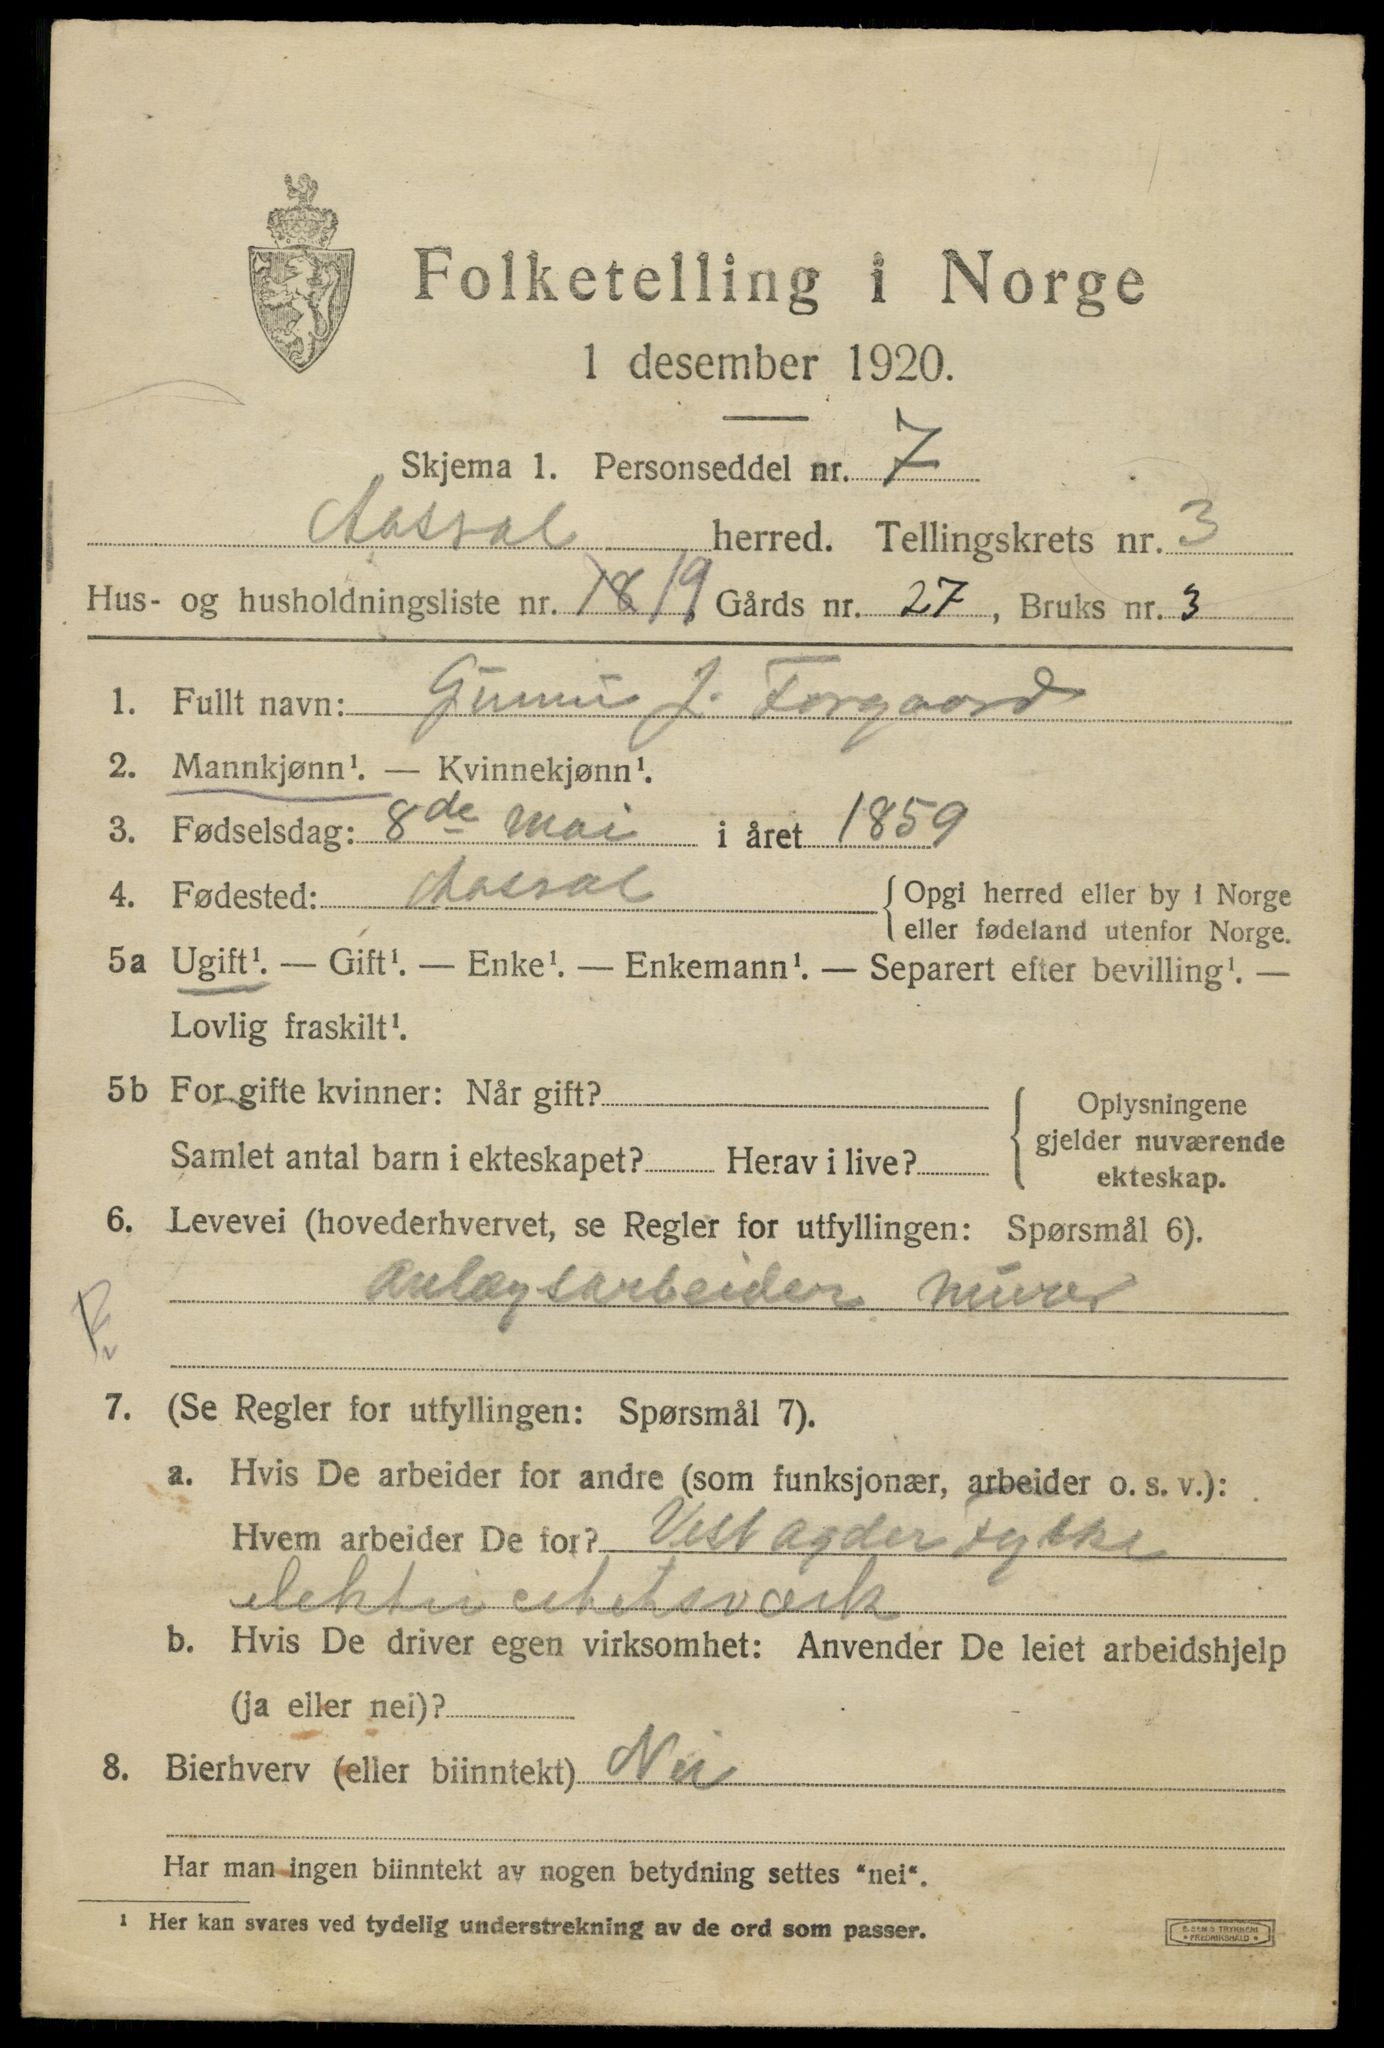 Folketelling i Norge
1 desember 1920.
Skjema 1. Personseddel nr. 7
Aaseral herred. Tellingskrets nr. 3
Hus- og husholdningsliste nr. 18 19 Gårds nr. 27, Bruks nr. 3
1. Fullt navn: J. Forgaard
2. Mannkjønn¹. — Kvinnekjønn¹.
3. Fødselsdag: 8de mai i året 1859
4. Fødested: Aaseral {Opgi herred eller by i Norge
eller fødeland utenfor Norge.
5a Ugift¹. — Gift¹. — Enke¹. — Enkemann¹. — Separert efter bevilling¹. —
Lovlig fraskilt¹.
5b For gifte kvinner: Når gift?
Samlet antal barn i ekteskapet? Herav i live?
Oplysningene
gjelder nuværende
ekteskap.
6. Levevei (hovederhvervet, se Regler for utfyllingen: Spørsmål 6).
Anlægsarbeider murer
7. (Se Regler for utfyllingen: Spørsmål 7).
a. Hvis De arbeider for andre (som funksjonær, arbeider o. s. v.):
Hvem arbeider De for? Vest agder fylke
elektricitetsværk
b. Hvis De driver egen virksomhet: Anvender De leiet arbeidshjelp
(ja eller nei)?
8. Bierhverv (eller biinntekt) Nei
Har man ingen biinntekt av nogen betydning settes "nei".
¹ Her kan svares ved tydelig understrekning av de ord som passer.
TRYKKERI
FREDRIKSHALD